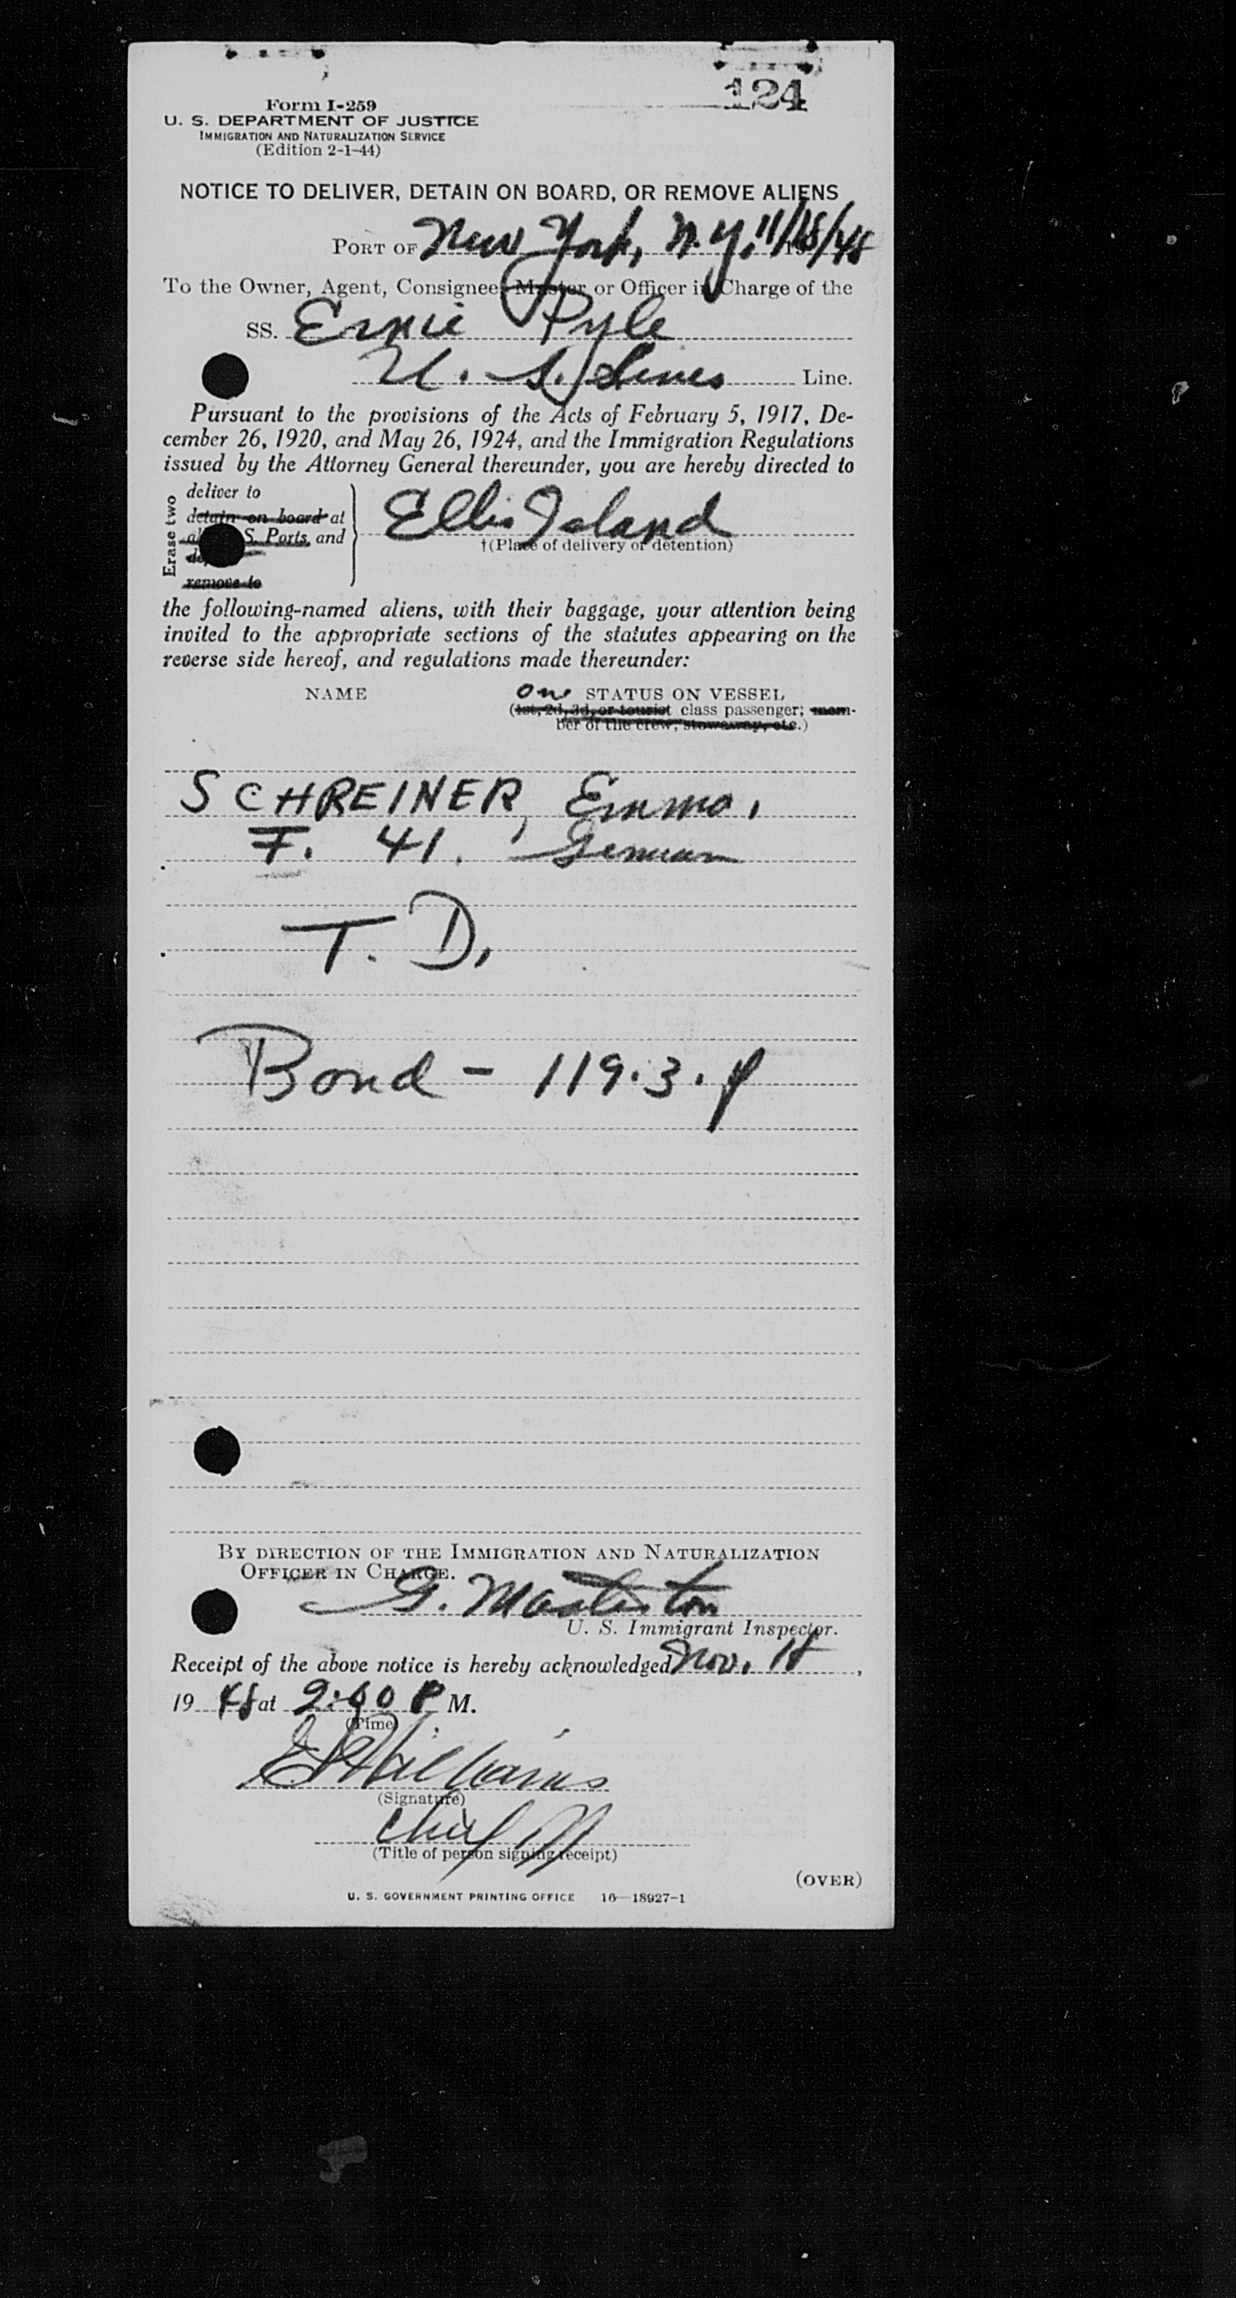 124
Form I-259
U. S. DEPARTMENT OF JUSTICE
IMMIGRATION AND NATURALIZATION SERVICE
(Edition 2-1-44)
NOTICE TO DELIVER, DETAIN ON BOARD, OR REMOVE ALIENS
PORT OF New York, N.Y. 11/18/48
To the Owner, Agent, Consignee, Master or Officer in Charge of the
SS. Ernie Pyle
U. S. Lines Line.
Pursuant to the provisions of the Acts of February 5, 1917, De-
cember 26, 1920, and May 26, 1924, and the Immigration Regulations
issued by the Attorney General thereunder, you are hereby directed to
Erase two
deliver to
detain on board at
S. Ports, and
remove to
Ellis Island
†(Place of delivery or detention)
the following-named aliens, with their baggage, your attention being
invited to the appropriate sections of the statutes appearing on the
reverse side hereof, and regulations made thereunder:
NAME
One STATUS ON VESSEL
(1st, 2d, 3d, or tourist class passenger; mem-
ber of the crew; stowaway, etc.)
SCHREINER, Emma.
F. 41. German
T. D.
Bond - 119.3.
BY DIRECTION OF THE IMMIGRATION AND NATURALIZATION
OFFICER IN CHARGE.
G. Masterton
U. S. Immigrant Inspector.
Receipt of the above notice is hereby acknowledged Nov. 18,
1948 at P M.
(Time)
Williams
(Signature)
Chief
(Title of person signing receipt)
(OVER)
U. S. GOVERNMENT PRINTING OFFICE 16—18927-1